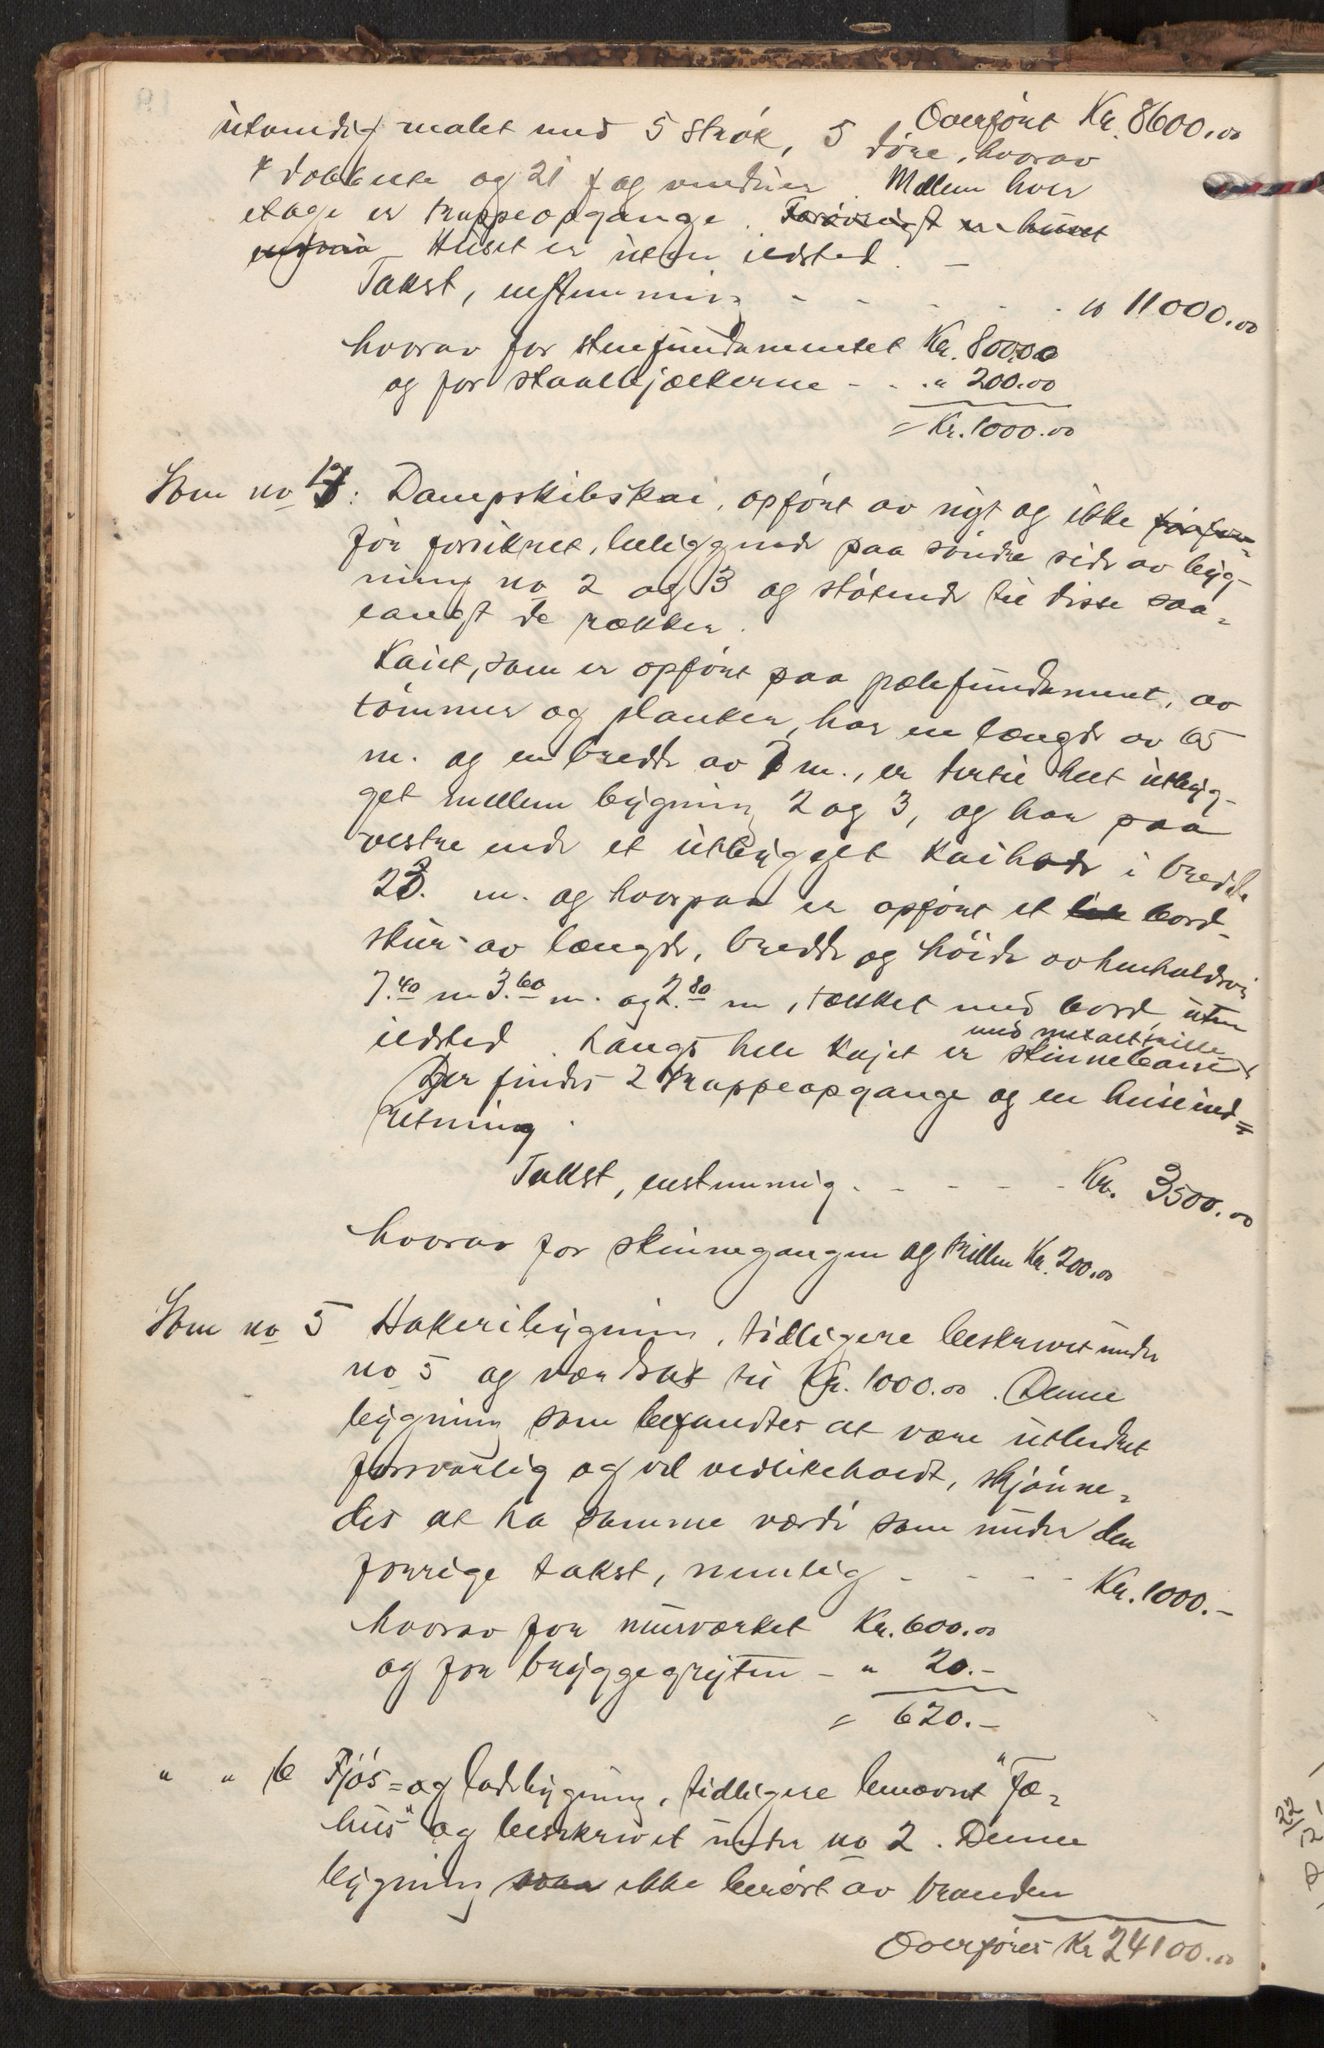 Overført Kr. 8600.00
utvendig malet med 5 strøk, 5 døre, hvorav
4 dobbelte og 21 fag vinduer. Mellem hver
etage er trappeopgange. Forøvrigt er huset
Huset er uten ildsted. –
Takst, enstemmig - - - - - " 11000.00
hvorav for stenfundamentet Kr. 800.00
og for staalbjælkerne - - " 200.00
= Kr. 1000.00
Som no 4: Dampskibskai, opført av nyt og ikke
før forsikret, beliggende paa søndre side av byg-
ning no 2 og 3 og støtende til disse saa-
langt de rækker.
Kaiet, som er opført paa pælefundament, av
tømmer og planker, har en længde av 65
m. og en bredde av 7 m., er dertil helt utbyg-
get mellem bygning 2 og 3, og har paa
vestre ende et utbygget kaihode i bredde
23. m. og hvorpaa er opført et bord-
skur av længde, bredde og høide av henholdsvis
7.40 m 3.60 m. og 2.80 m, tækket med bord, uten
ildsted. Langs hele kajet er skinnebane
med metaltrille
Der findes 2 trappeopgange og en heiseind=
retning.
Takst, enstemmig - - - - - Kr. 3500.00
hvorav for skinnegangen og trillen Kr. 200.00
Som no 5 Bakeribygning, tidligere beskrevet under
no 5 og værdsat til Kr. 1000.00. Denne
bygning som befandtes at være utbedret
forsvarlig og vel vedlikeholdt, skjønne-
des at ha samme værdi som under den
forrige takst, nemlig - - - - Kr. 1000.-
hvorav for murverket Kr. 600.00
og for bryggegryten - " 20.-
= 620.-
" " 6 Fjøs= og ladebygning, tidligere benævnt "Fæ-
hus" og beskrevet under no 2. Denne
bygning var ikke berørt av branden
Overføres Kr 24100.00